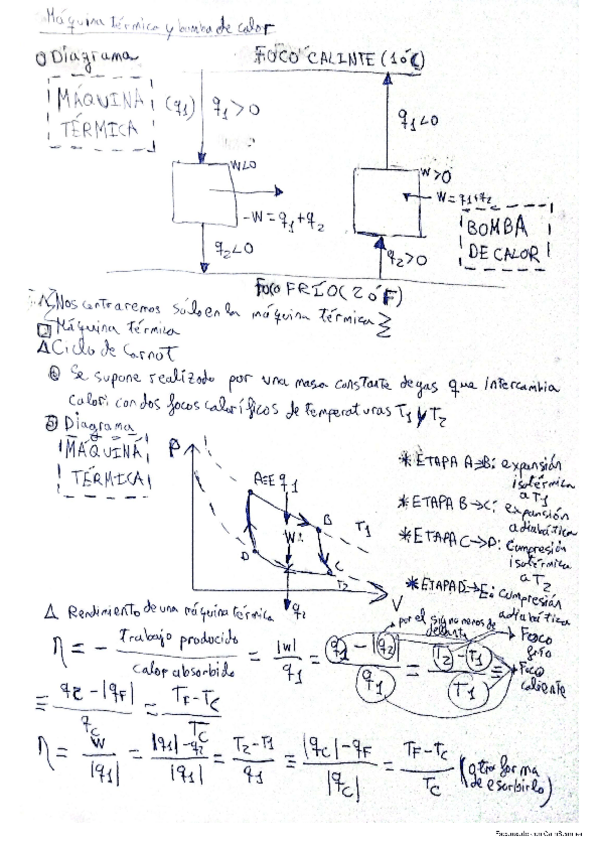 Máquina térmica y bomba de calor
① Diagrama
FOCO CALINTE (1ó C)
MÁQUINA
TÉRMICA
(q1) q1>0
q1<0
W<0
W>0
-W=q1+q2
W=q1+q2
BOMBA
DE CALOR
q2<0
q2>0
Foco FRÍO (2 ó F)
Nos centraremos sólo en la máquina térmica
Máquina térmica
Δ Ciclo de Carnot
Se supone realizado por una masa constante de gas que intercambia
calor con dos focos caloríficos de temperaturas T1 y T2
Diagrama
MÁQUINA
TÉRMICA
P
A≡E q1
B
W
T1
D
C
T2
V
q2
* ETAPA A→B: expansión
isotérmica
a T1
* ETAPA B→C: expansión
adiabática
* ETAPA C→D: Compresión
isotérmica
a T2
* ETAPA D→E: compresión
adiabática
Δ Rendimiento de una máquina térmica
por el signo menos de
delante
Foco
frío
Foco
caliente
η = - Trabajo producido / calor absorbido = |w| / q1 = q1 - |q2| / q1 = T2 - T1 / T1 ≡
≡ qc - |qF| / qc = TF - Tc / Tc
η = W / |q1| = |q1| - q2 / |q1| = T2 - T1 / q1 ≡ |qc| - qF / |qc| = TF - Tc / Tc (otra forma
de escribirlo)
Escaneado con CamScanner